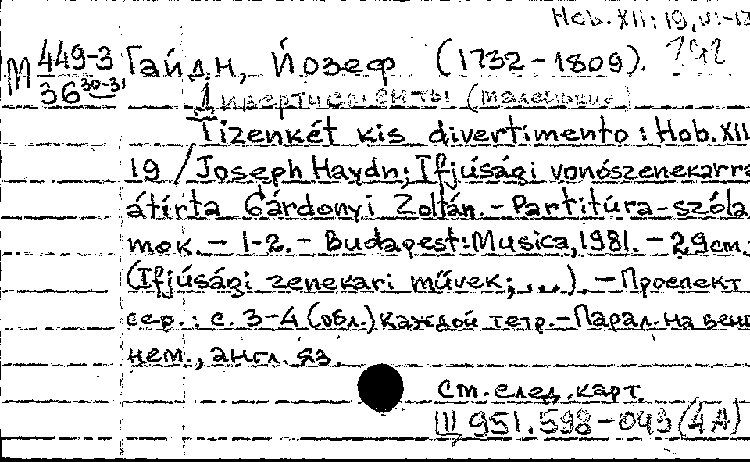 Hob. XII: 19,
М 449-3 Гайдн, Йозеф (1732-1809).
36 30-31
Дивертисменты (маленькие)
Tizenkét kis divertimento: Hob. XII
19 / Joseph Haydn; Ifjúsági vonószenekarra
átírta Gárdonyi Zoltán. - Partitúra-szóla
mok. - 1-2. - Budapest: Musica, 1981. - 29cm.
(Ifjúsági zenekari művek; ...). - Проспект
сер.: с. 3-4 (обл.) каждой тетр. - Парал. на венг
нем., англ. яз.
См. след. карт.
III 951.598-043 (4А)